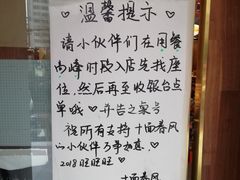 ♡温馨提示♡
请小伙伴们在用餐
高峰时段入店先找座
位,然后再至收银台点
单哦♡ 并告之桌号
祝所有支持十面春风
的小伙伴万事如意♡
2018旺旺旺♡
十面春风